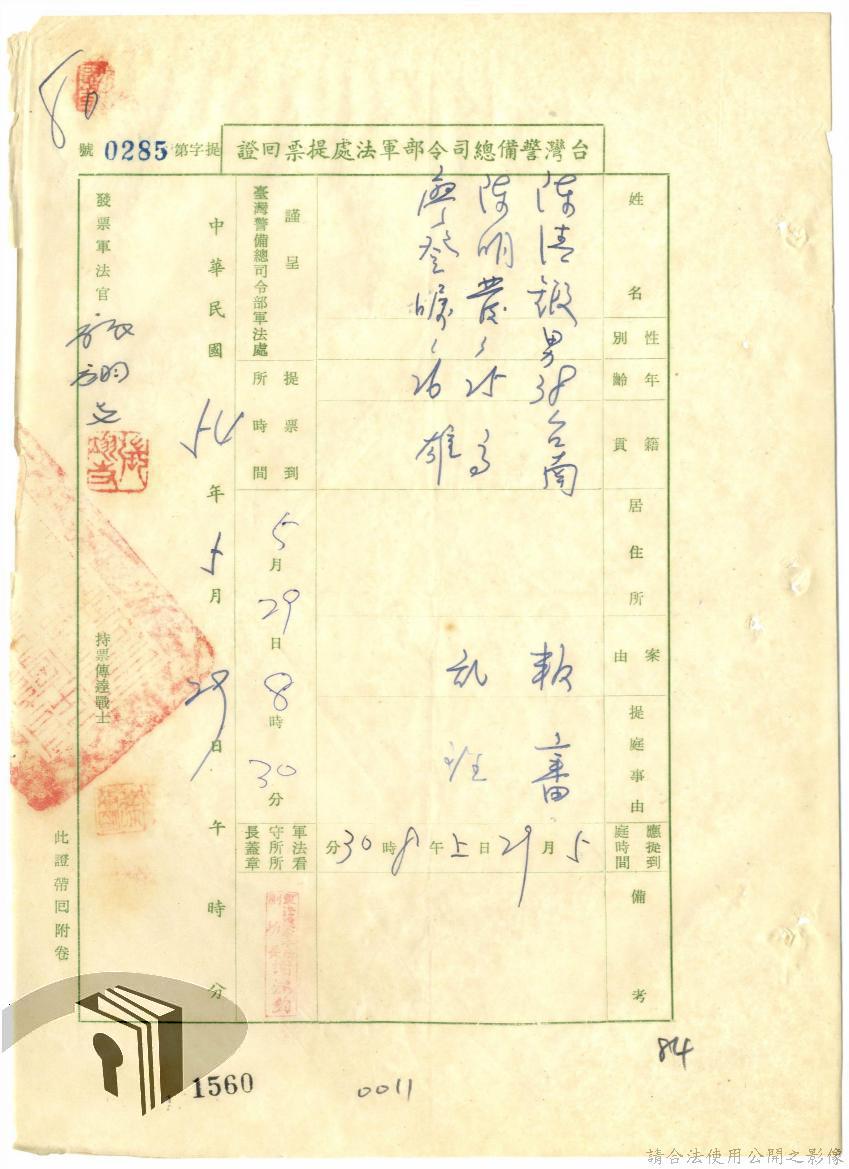 80
台灣警備總司令部軍法處提票回證
提字第0285號
姓名
性別
年齡
籍貫
居住所
案由
提庭事由
應提到庭時間
備考
陳清
男
38
台南
陳明發
〃
25
高
〃
26
雄
叛
乱
審
5月29日上午8時30分
謹呈
臺灣警備總司令部軍法處
提票到所時間
5月29日8時30分
軍法看守所所長蓋章
中華民國54年5月29日午時分
發票軍法官
持票傳達戰士
此證帶回附卷
84
1560
0011
請合法使用公開之影像